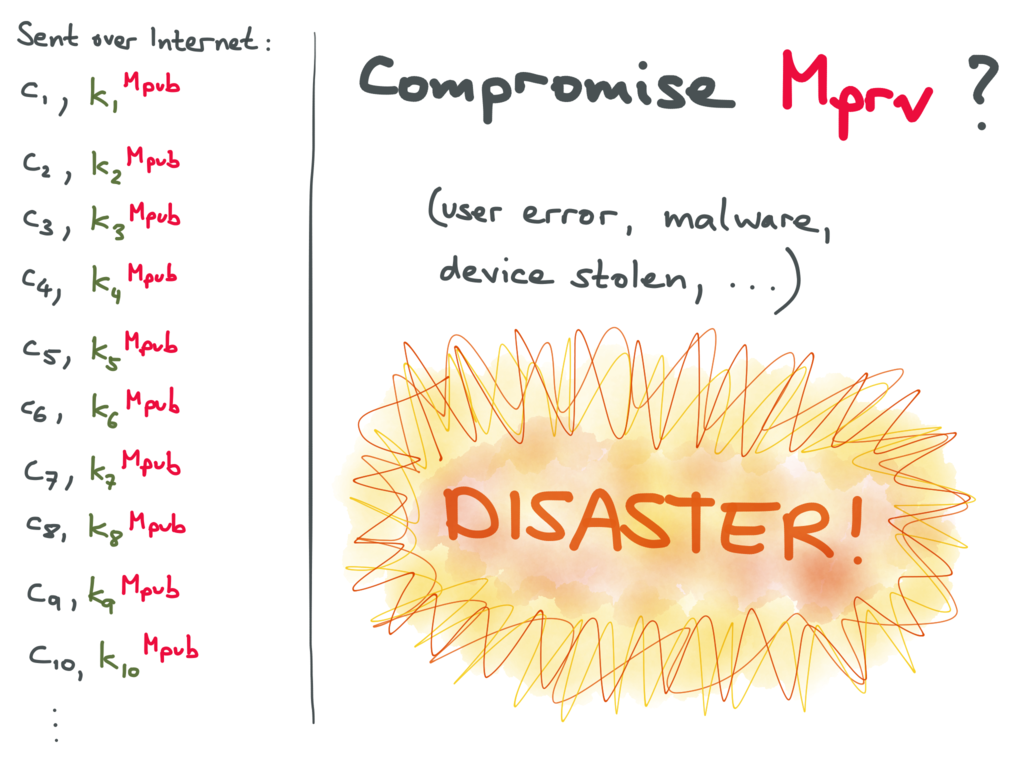 Sent over Internet:
c₁, k₁^Mpub
c₂, k₂^Mpub
c₃, k₃^Mpub
c₄, k₄^Mpub
c₅, k₅^Mpub
c₆, k₆^Mpub
c₇, k₇^Mpub
c₈, k₈^Mpub
c₉, k₉^Mpub
c₁₀, k₁₀^Mpub
⋮
Compromise Mprv ?
(user error, malware,
device stolen, ...)
DISASTER!